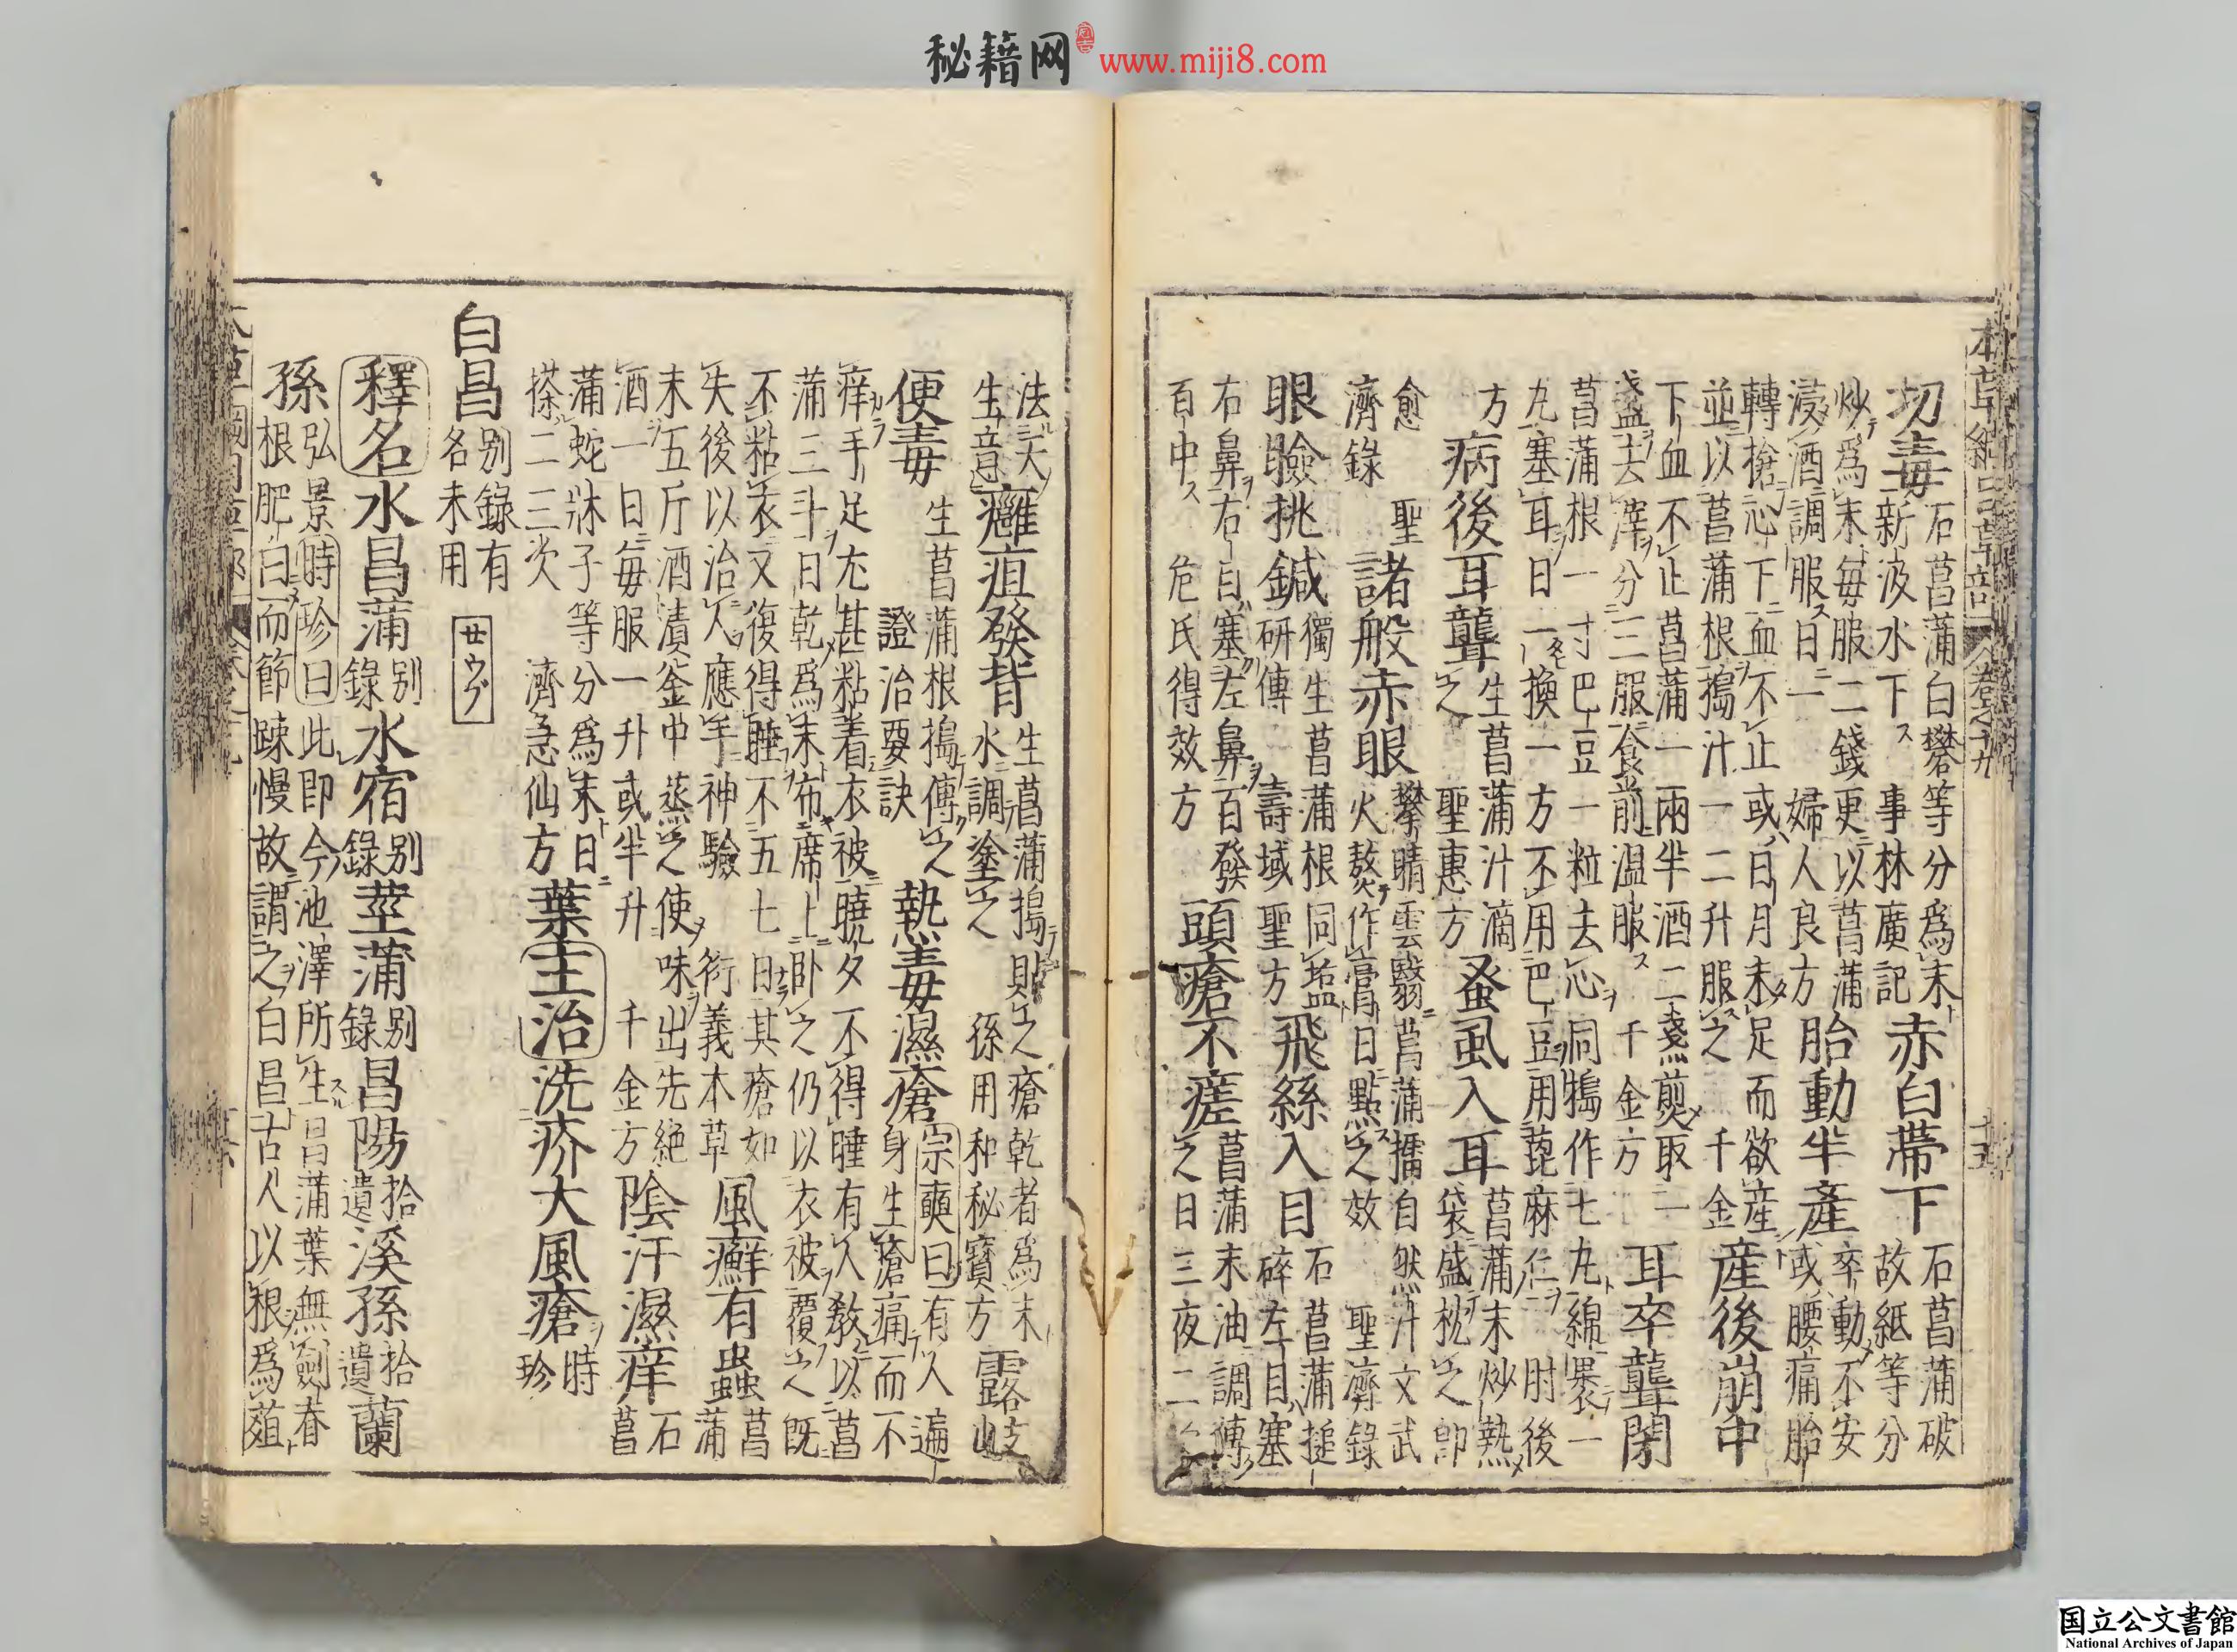 秘籍网 www.miji8.com
切毒石菖蒲白礬等分爲末新汲水下事林廣記赤白帶下石菖蒲破故紙等分
炒爲末每服二錢更以菖蒲浸酒調服日一婦人良方胎動半產卒動不安或腰痛胎
轉搶心下血不止或日月未足而欲產
並以菖蒲根搗汁一二升服之千金產後崩中
下血不止菖蒲一兩半酒二盞煎取一
盞去滓分三服食前温服千金方耳卒聾閉
菖蒲根一寸巴豆一粒去心同搗作七丸綿裹一
丸塞耳日一換一方不用巴豆用蓖麻仁肘後
方病後耳聾生菖蒲汁滴之聖惠方蚤虱入耳菖蒲末炒熱袋盛枕之即
愈聖濟錄諸般赤眼攀睛雲翳菖蒲擂自然汁文武火熬作膏日點之效聖濟錄
眼瞼挑鍼獨生菖蒲根同鹽研傅壽域聖方飛絲入目石菖蒲搥碎左目塞
右鼻右目塞左鼻百發百中危氏得效方頭瘡不瘥菖蒲末油調傅之日三夜二
法天生意癰疽發背生菖蒲搗貼之瘡乾者爲末水調塗之孫用和秘寶方露岐
便毒生菖蒲根搗傅之證治要訣熱毒濕瘡宗奭曰有人遍身生瘡痛而不
痒手足尤甚粘着衣被曉夕不得睡有人教以菖
蒲三斗日乾爲末布席上卧之仍以衣被覆之既
不粘衣又復得睡不五七日其瘡如
失後以治人應手神驗衍義本草風癬有蟲菖蒲
末五斤酒漬釜中蒸之使味出先絕
酒一日每服一升或半升千金方陰汗濕痒石菖
蒲蛇牀子等分爲末日
搽二三次濟急仙方葉主治洗疥大風瘡時珍
白昌别錄有名未用
廿ウグ
釋名水昌蒲别錄水宿别錄莖蒲别錄昌陽拾遺溪孫拾遺蘭
孫弘景時珍曰此即今池澤所生昌蒲葉無劍脊
根肥白而節踈慢故謂之白昌古人以根爲葅
国立公文書館
National Archives of Japan